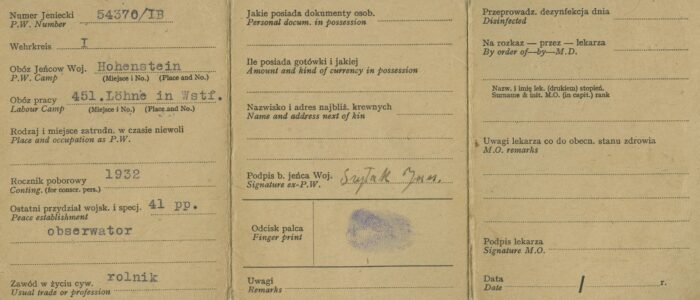 Numer Jeniecki 54370/IB
P.W. Number
Wehrkreis I
Obóz Jeńców Woj. Hohenstein
P.W. Camp (Miejsce i No.) (Place and No.)
Obóz pracy 451.Löhne in Wstf.
Labour Camp (Miejsce i No.) (Place and No.)
Rodzaj i miejsce zatrudn. w czasie niewoli
Place and occupation as P.W.
Rocznik poborowy 1932
Conting. (for conscr. pers.)
Ostatni przydział wojsk. i specj. 41 pp.
Peace establishment
obserwator
Zawód w życiu cyw. rolnik
Usual trade or profession
Jakie posiada dokumenty osob.
Personal docum. in possession
Ile posiada gotówki i jakiej
Amount and kind of currency in possession
Nazwisko i adres najbliż. krewnych
Name and address next of kin
Podpis b. jeńca Woj.
Signature ex-P.W.
Odcisk palca
Finger print
Uwagi
Remarks
Przeprowadz. dezynfekcja dnia
Disinfected
Na rozkaz — przez — lekarza
By order of—by—M.D.
Nazw. i imię lek. (drukiem) stopień.
Surname & init. M.O. (in capit.) rank
Uwagi lekarza co do obecn. stanu zdrowia
M.O. remarks
Podpis lekarza
Signature M.O.
Data / r.
Date